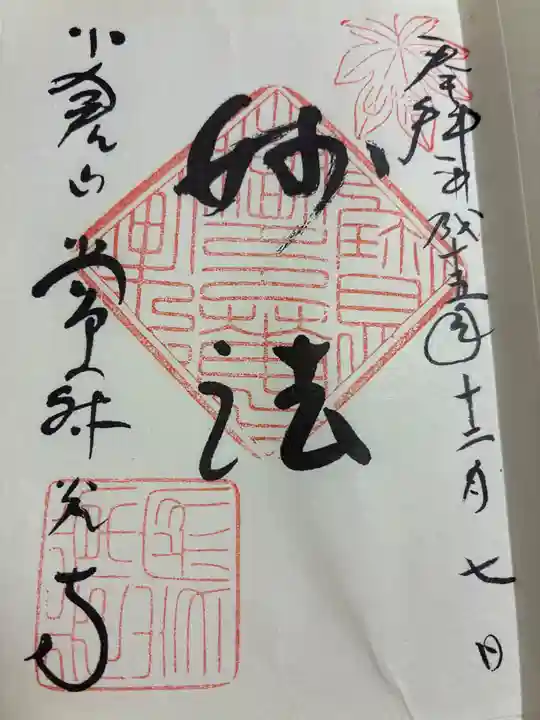 奉拝 平成十五年十二月七日
妙法
小倉山 常寂光寺